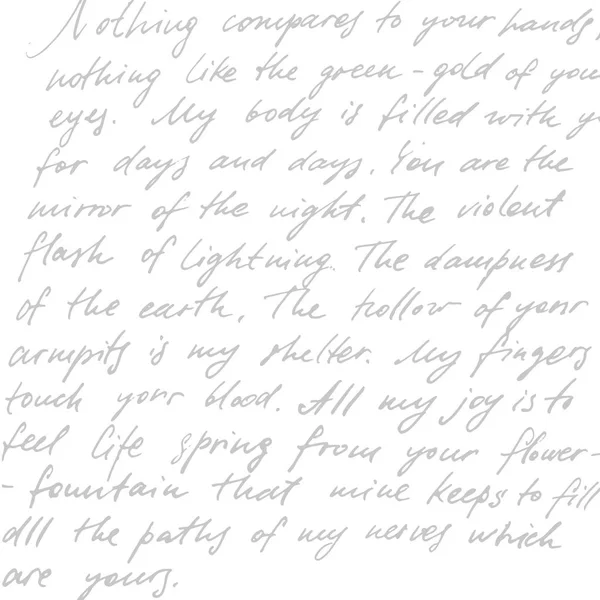 Nothing compares to your hands,
nothing like the green-gold of you
eyes. My body is filled with y
for days and days. You are the
mirror of the night. The violent
flash of lightning. The dampness
of the earth. The hollow of your
armpits is my shelter. My fingers
touch your blood. All my joy is to
feel life spring from your flower-
-fountain that mine keeps to fill
all the paths of my nerves which
are yours.